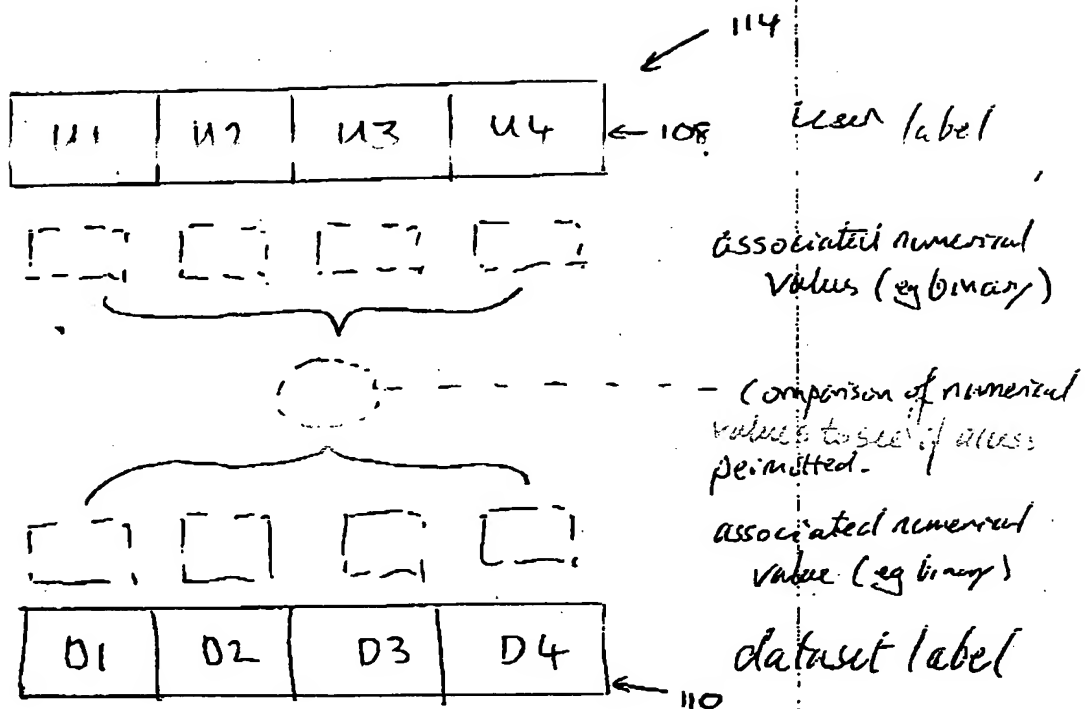 114
U1 U2 U3 U4 108 user label
associated numerical
value (eg binary)
Comparison of numerical
values to see if access
permitted.
associated numerical
value (eg binary)
D1 D2 D3 D4 dataset label
110